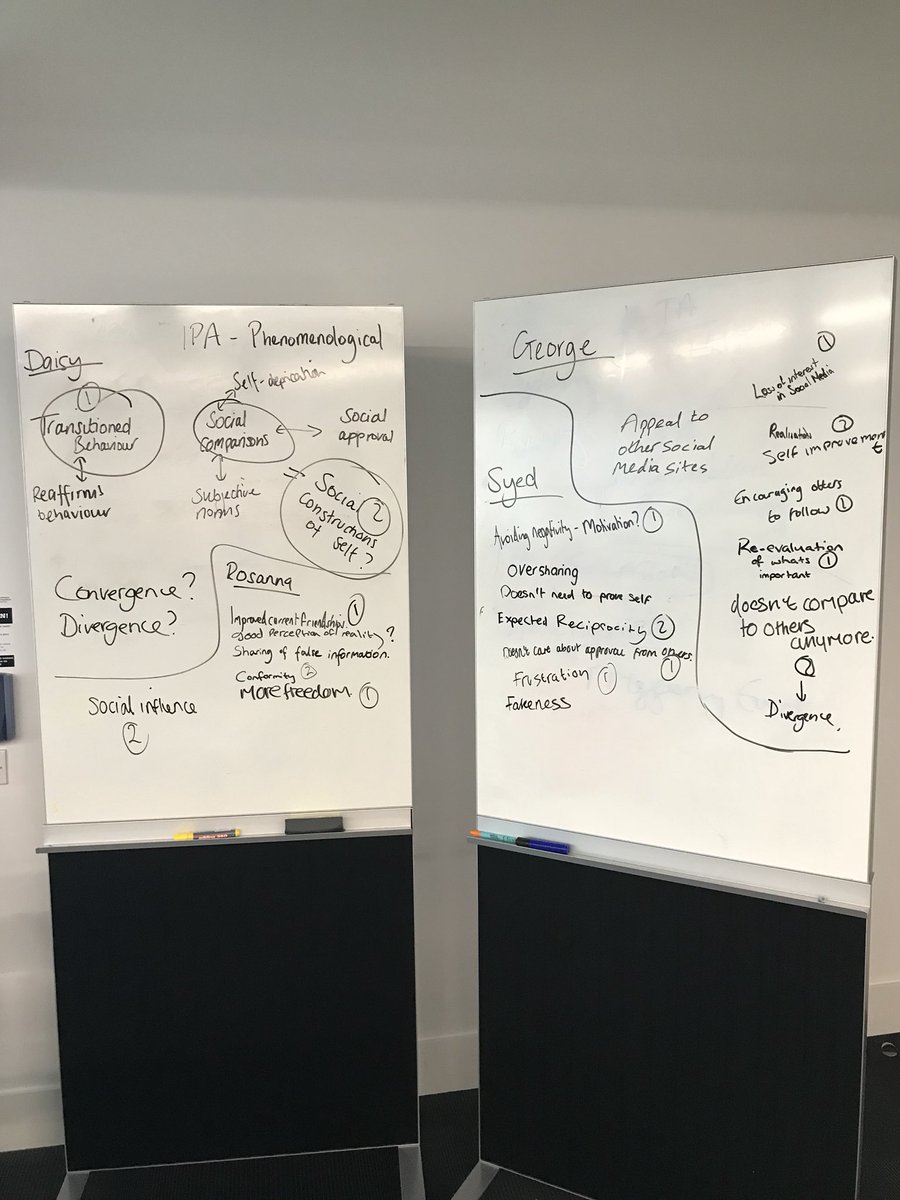 IPA - Phenomenological
Daisy
1
Transitioned
Behaviour
Reaffirms
behaviour
Self-deprication
Social
Comparisons
Social
approval
Subjective
norms
Social 2
Constructions
of Self?
Convergence?
Divergence?
Social influence
2
Rosanna
Improved current friendships. 1
Good perception of reality?
Sharing of false information.
Conformity 2
More freedom. 1
George
Appeal to
other social
Media sites
1
Loss of interest
in Social Media
Realisation 2
Self improvement
Encouraging others
to follow 1
Re-evaluation
of whats 1
important
doesn't compare
to others
anymore.
2
Divergence.
Syed
Avoiding negativity - Motivation? 1
Oversharing
Doesn't need to prove self
Expected Reciprocity 2
Doesn't care about approval from others.
1
Frustration 1
Fakeness